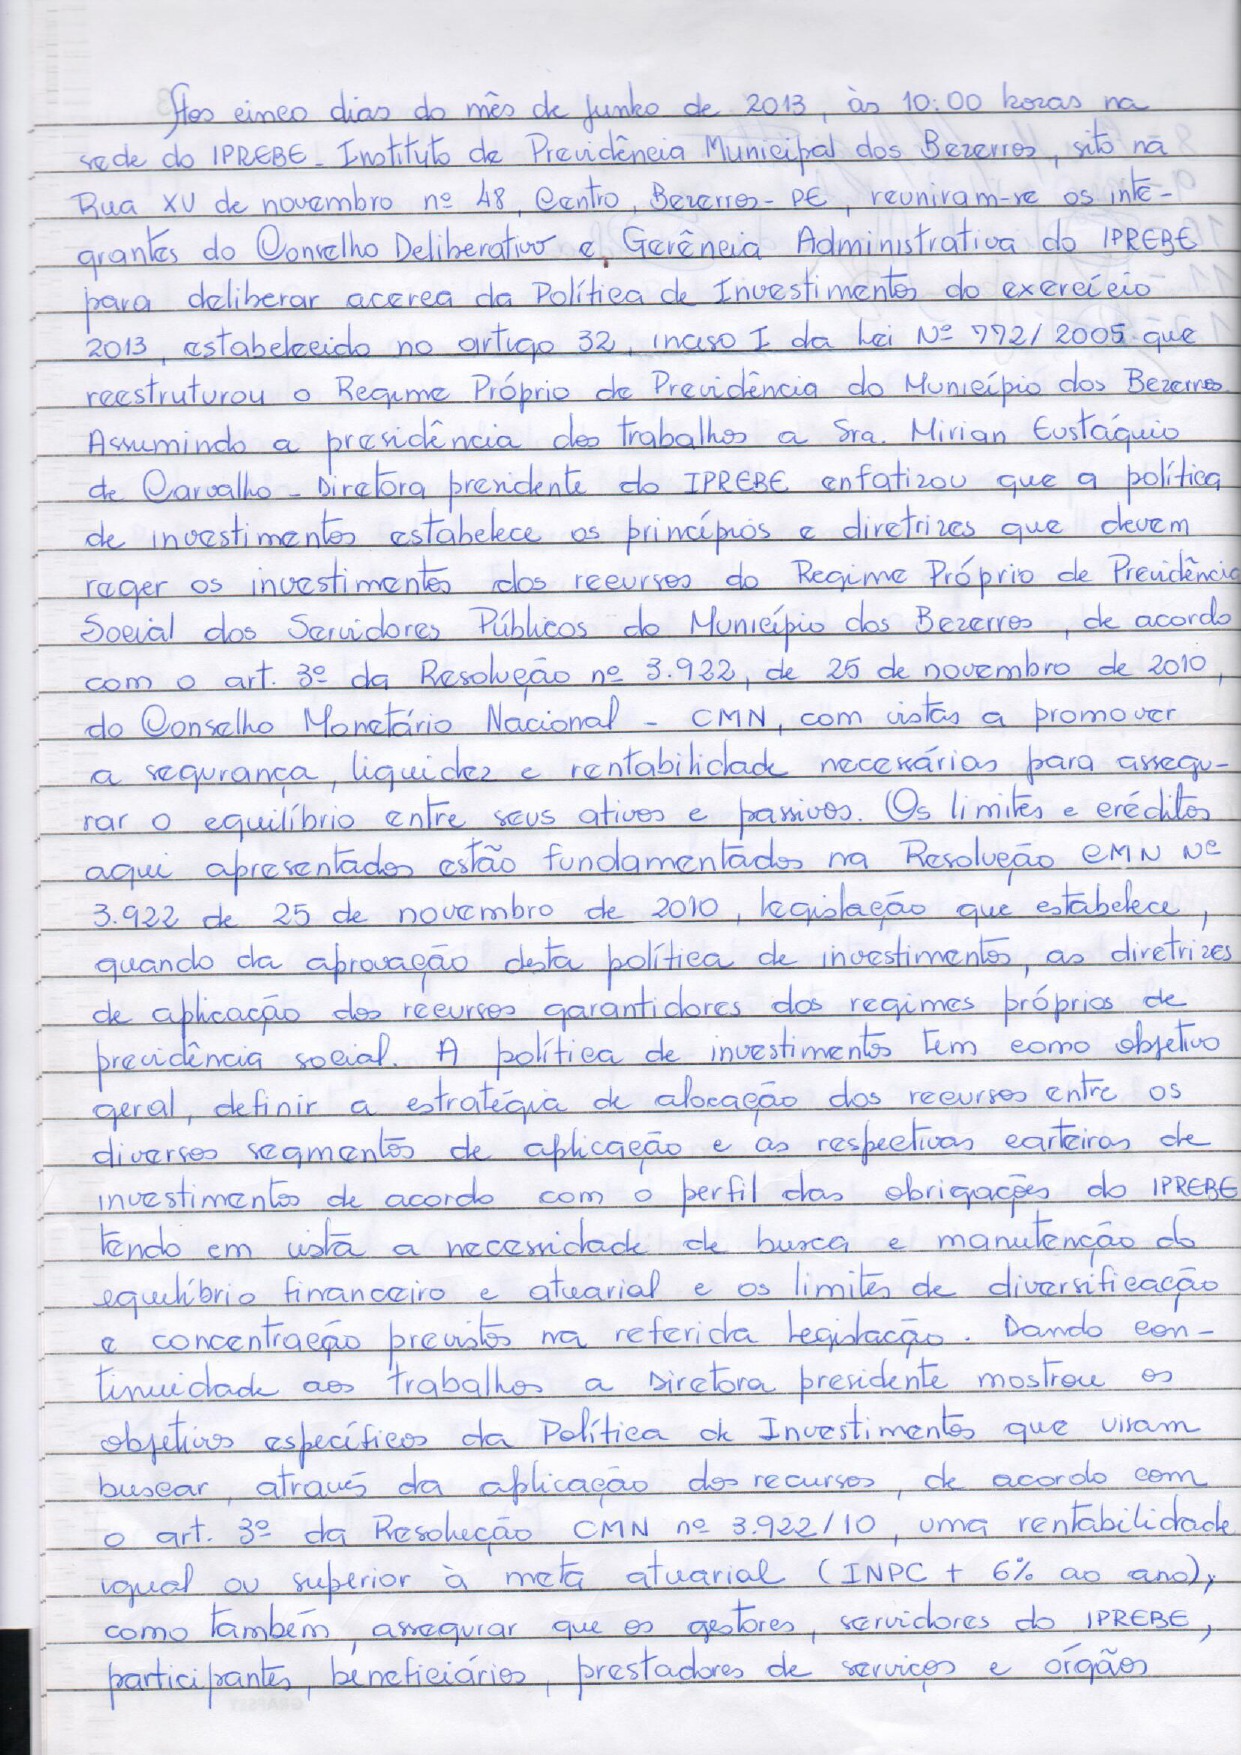 Aos cinco dias do mês de Junho de 2013, às 10:00 horas na
sede do IPREBE - Instituto de Previdência Municipal dos Bezerros, sito na
Rua XV de novembro nº 48, Centro, Bezerros - PE, reuniram-se os inte-
grantes do Conselho Deliberativo e Gerência Administrativa do IPREBE
para deliberar acerca da Política de Investimentos do exercício
2013, estabelecido no artigo 32, inciso I da Lei Nº 772/2005 que
reestruturou o Regime Próprio de Previdência do Município dos Bezerros.
Assumindo a presidência dos trabalhos a Sra. Mirian Eustáquio
de Carvalho - Diretora presidente do IPREBE enfatizou que a política
de investimentos estabelece os princípios e diretrizes que devem
reger os investimentos dos recursos do Regime Próprio de Previdência
Social dos Servidores Públicos do Município dos Bezerros, de acordo
com o art. 3º da Resolução nº 3.922, de 25 de novembro de 2010,
do Conselho Monetário Nacional - CMN, com vistas a promover
a segurança, liquidez e rentabilidade necessárias para assegu-
rar o equilíbrio entre seus ativos e passivos. Os limites e créditos
aqui apresentados estão fundamentados na Resolução CMN Nº
3.922 de 25 de novembro de 2010, legislação que estabelece,
quando da aprovação desta política de investimentos, as diretrizes
de aplicação dos recursos garantidores dos regimes próprios de
previdência social. A política de investimentos tem como objetivo
geral, definir a estratégia de alocação dos recursos entre os
diversos segmentos de aplicação e as respectivas carteiras de
investimentos de acordo com o perfil das obrigações do IPREBE
tendo em vista a necessidade de busca e manutenção do
equilíbrio financeiro e atuarial e os limites de diversificação
e concentração previstos na referida legislação. Dando con-
tinuidade aos trabalhos a Diretora presidente mostrou os
objetivos específicos da Política de Investimentos que visam
buscar, através da aplicação dos recursos, de acordo com
o art. 3º da Resolução CMN nº 3.922/10, uma rentabilidade
igual ou superior à meta atuarial (INPC + 6% ao ano),
como também, assegurar que os gestores, servidores do IPREBE,
participantes, beneficiários, prestadores de serviços e órgãos